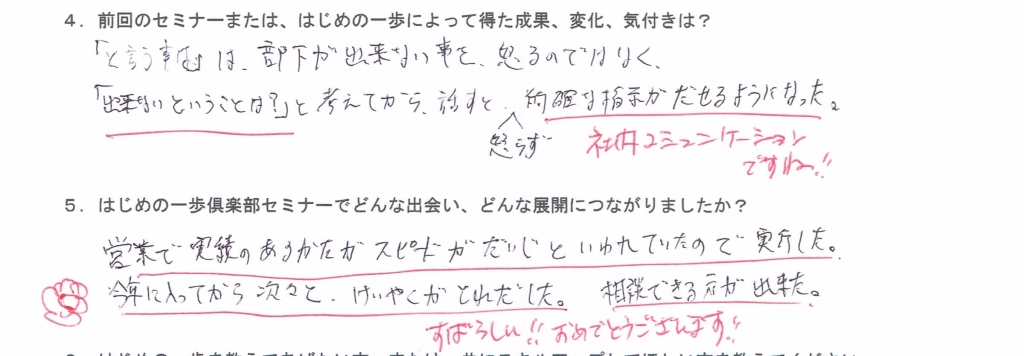 ４．前回のセミナーまたは、はじめの一歩によって得た成果、変化、気付きは？
「と言う事は」は、部下が出来ない事を、怒るのではなく、
「出来ないということは？」と考えてから、話すと、的確な指示がだせるようになった。
怒らず
社内コミュニケーション
ですね!!
５．はじめの一歩倶楽部セミナーでどんな出会い、どんな展開につながりましたか？
営業で実績のあるかたがスピードがだいじといわれていたので実行した。
今年に入ってから次々と、けいやくがとれだした。相談できる方が出来た。
すばらしい!!おめでとうございます!!